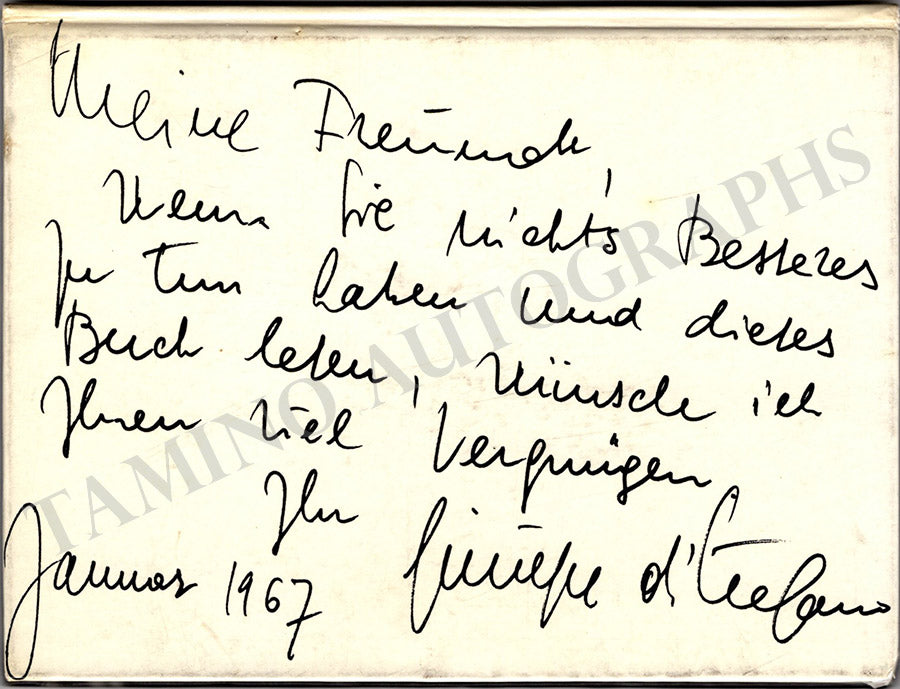 Meine Freunde,
Wenn Sie nichts Besseres
zu tun haben und dieses
Buch lesen, wünsche ich
Ihnen viel Vergnügen
Ihr
Januar 1967 Giuseppe di Stefano
TAMINO AUTOGRAPHS